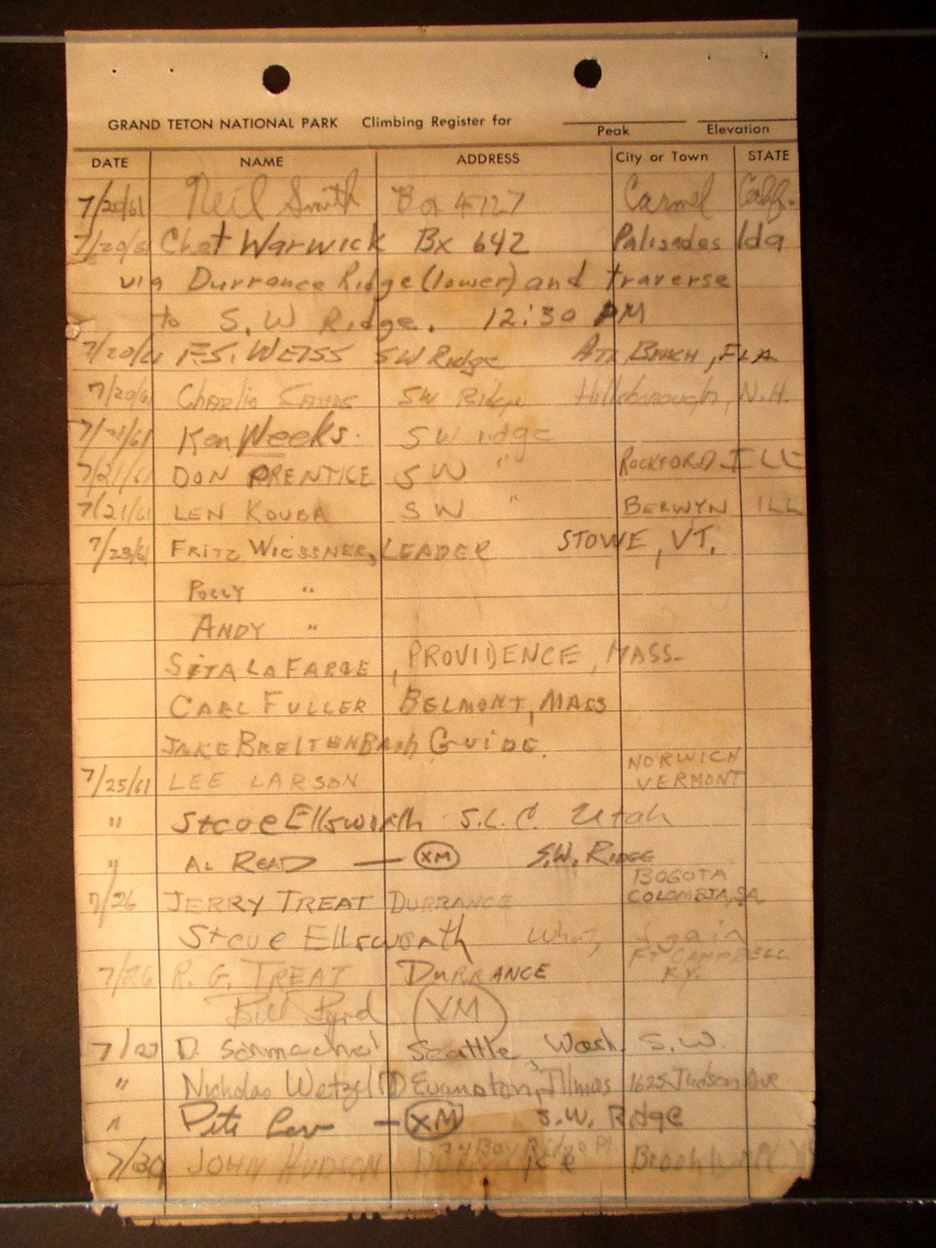 GRAND TETON NATIONAL PARK Climbing Register for
Peak Elevation
DATE NAME ADDRESS City or Town STATE
7/20/61 Neil Smith Box 4727 Carmel Calif.
7/20/61 Chet Warwick Bx 642 Palisades Ida
via Durrance Ridge (lower) and traverse
to S.W Ridge. 12:30 PM
7/20/61 F.S. WEISS SW Ridge ATL BEACH, FLA
7/20/61 Charlie SW Ridge Hillsborough, N.H.
7/21/61 Ken Weeks. SW idge
7/21/61 DON PRENTICE SW " ROCKFORD ILL
7/21/61 LEN KOUBA SW " BERWYN ILL
7/23/61 FRITZ WIESSNER, LEADER STOWE, VT.
POLLY "
ANDY "
SITA LAFARGE, PROVIDENCE, MASS-
CARL FULLER BELMONT, MASS
JAKE BREITENBACH GUIDE.
7/25/61 LEE LARSON NORWICH VERMONT
" Steve Ellsworth S.L.C. Utah
" AL READ — XM S.W. RIDGE
7/26 JERRY TREAT DURRANCE BOGOTA COLOMBIA, SA.
Steve Ellsworth What, again
7/26 R. G. TREAT DURRANCE FT CAMPBELL KY.
Bill Byrd XM
7/27 D. Seattle, Wash. S.W.
" Nicholas Wetzel Evanston, Illinois 1625 Judson Ave
" Pete Lev — XM S.W. Ridge
7/30 JOHN HUDSON Brooklyn N.Y.